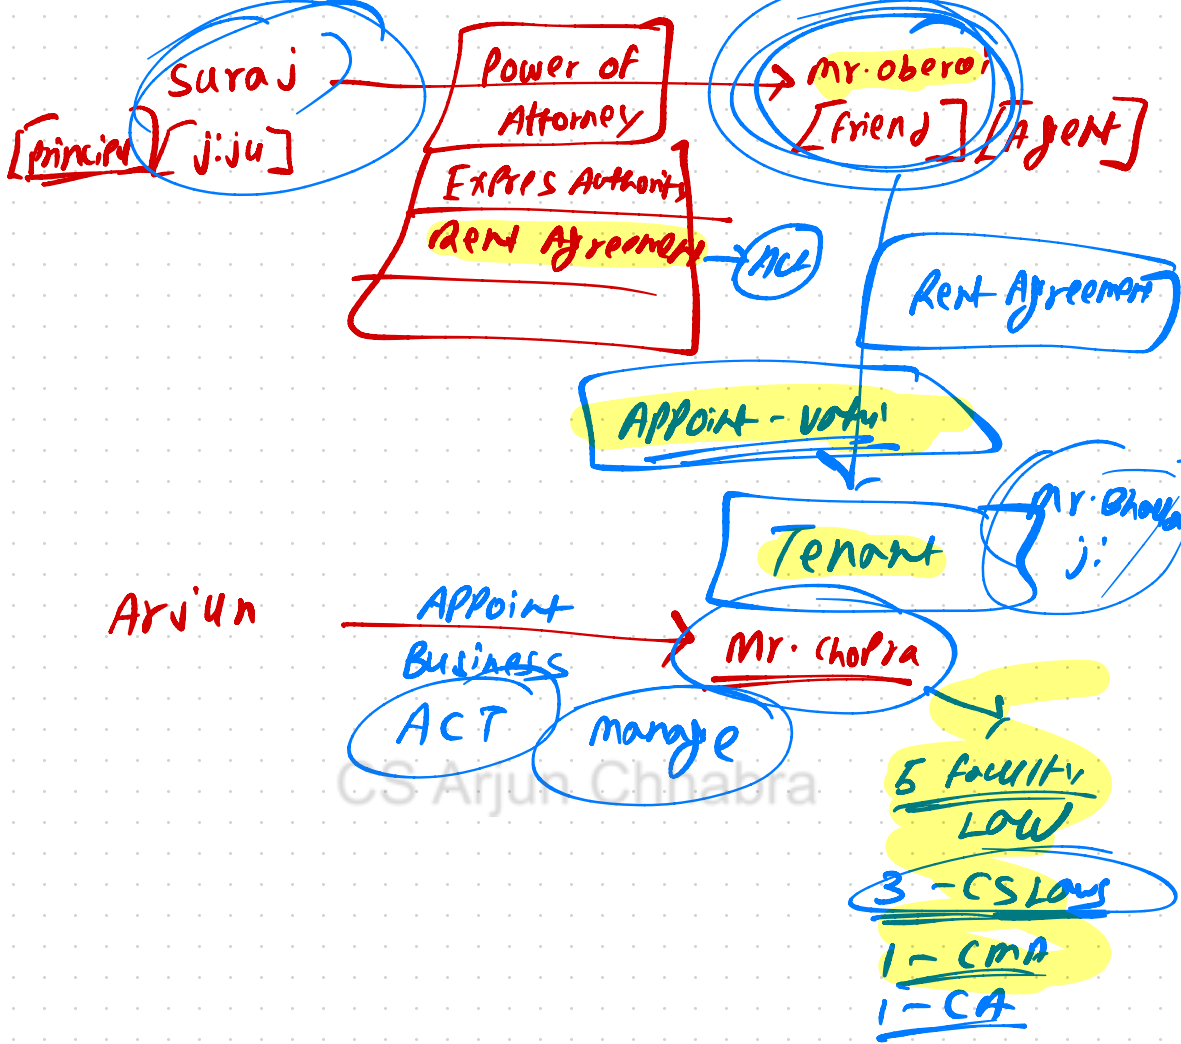 Suraj
[principal]
[jiju]
Power of
Attorney
Expres Authority
Rent Agreement
Act
Mr. Oberoi
[friend]
[Agent]
Rent Agreement
Appoint -
Tenant
Mr.
ji
Arjun
Appoint
Business
ACT
manage
Mr. Chopra
CS Arjun Chhabra
5 faculty
LAW
3 - CS Laws
1 - CMA
1 - CA